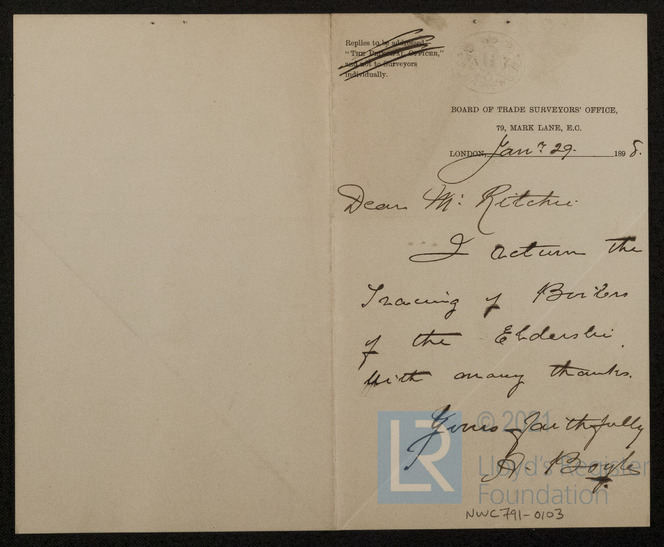 Replies to be addressed
"THE PRINCIPAL OFFICER,"
and not to Surveyors
individually.
BOARD OF TRADE SURVEYORS' OFFICE,
79, MARK LANE, E.C.
LONDON, Janr 29 1898.
Dear Mr Ritchie
I return the
Tracing of Boilers
of the Elderslie
with many thanks.
Yours faithfully
A. Boyle
© 2021
LR Lloyd's Register
Foundation
NWC791-0103